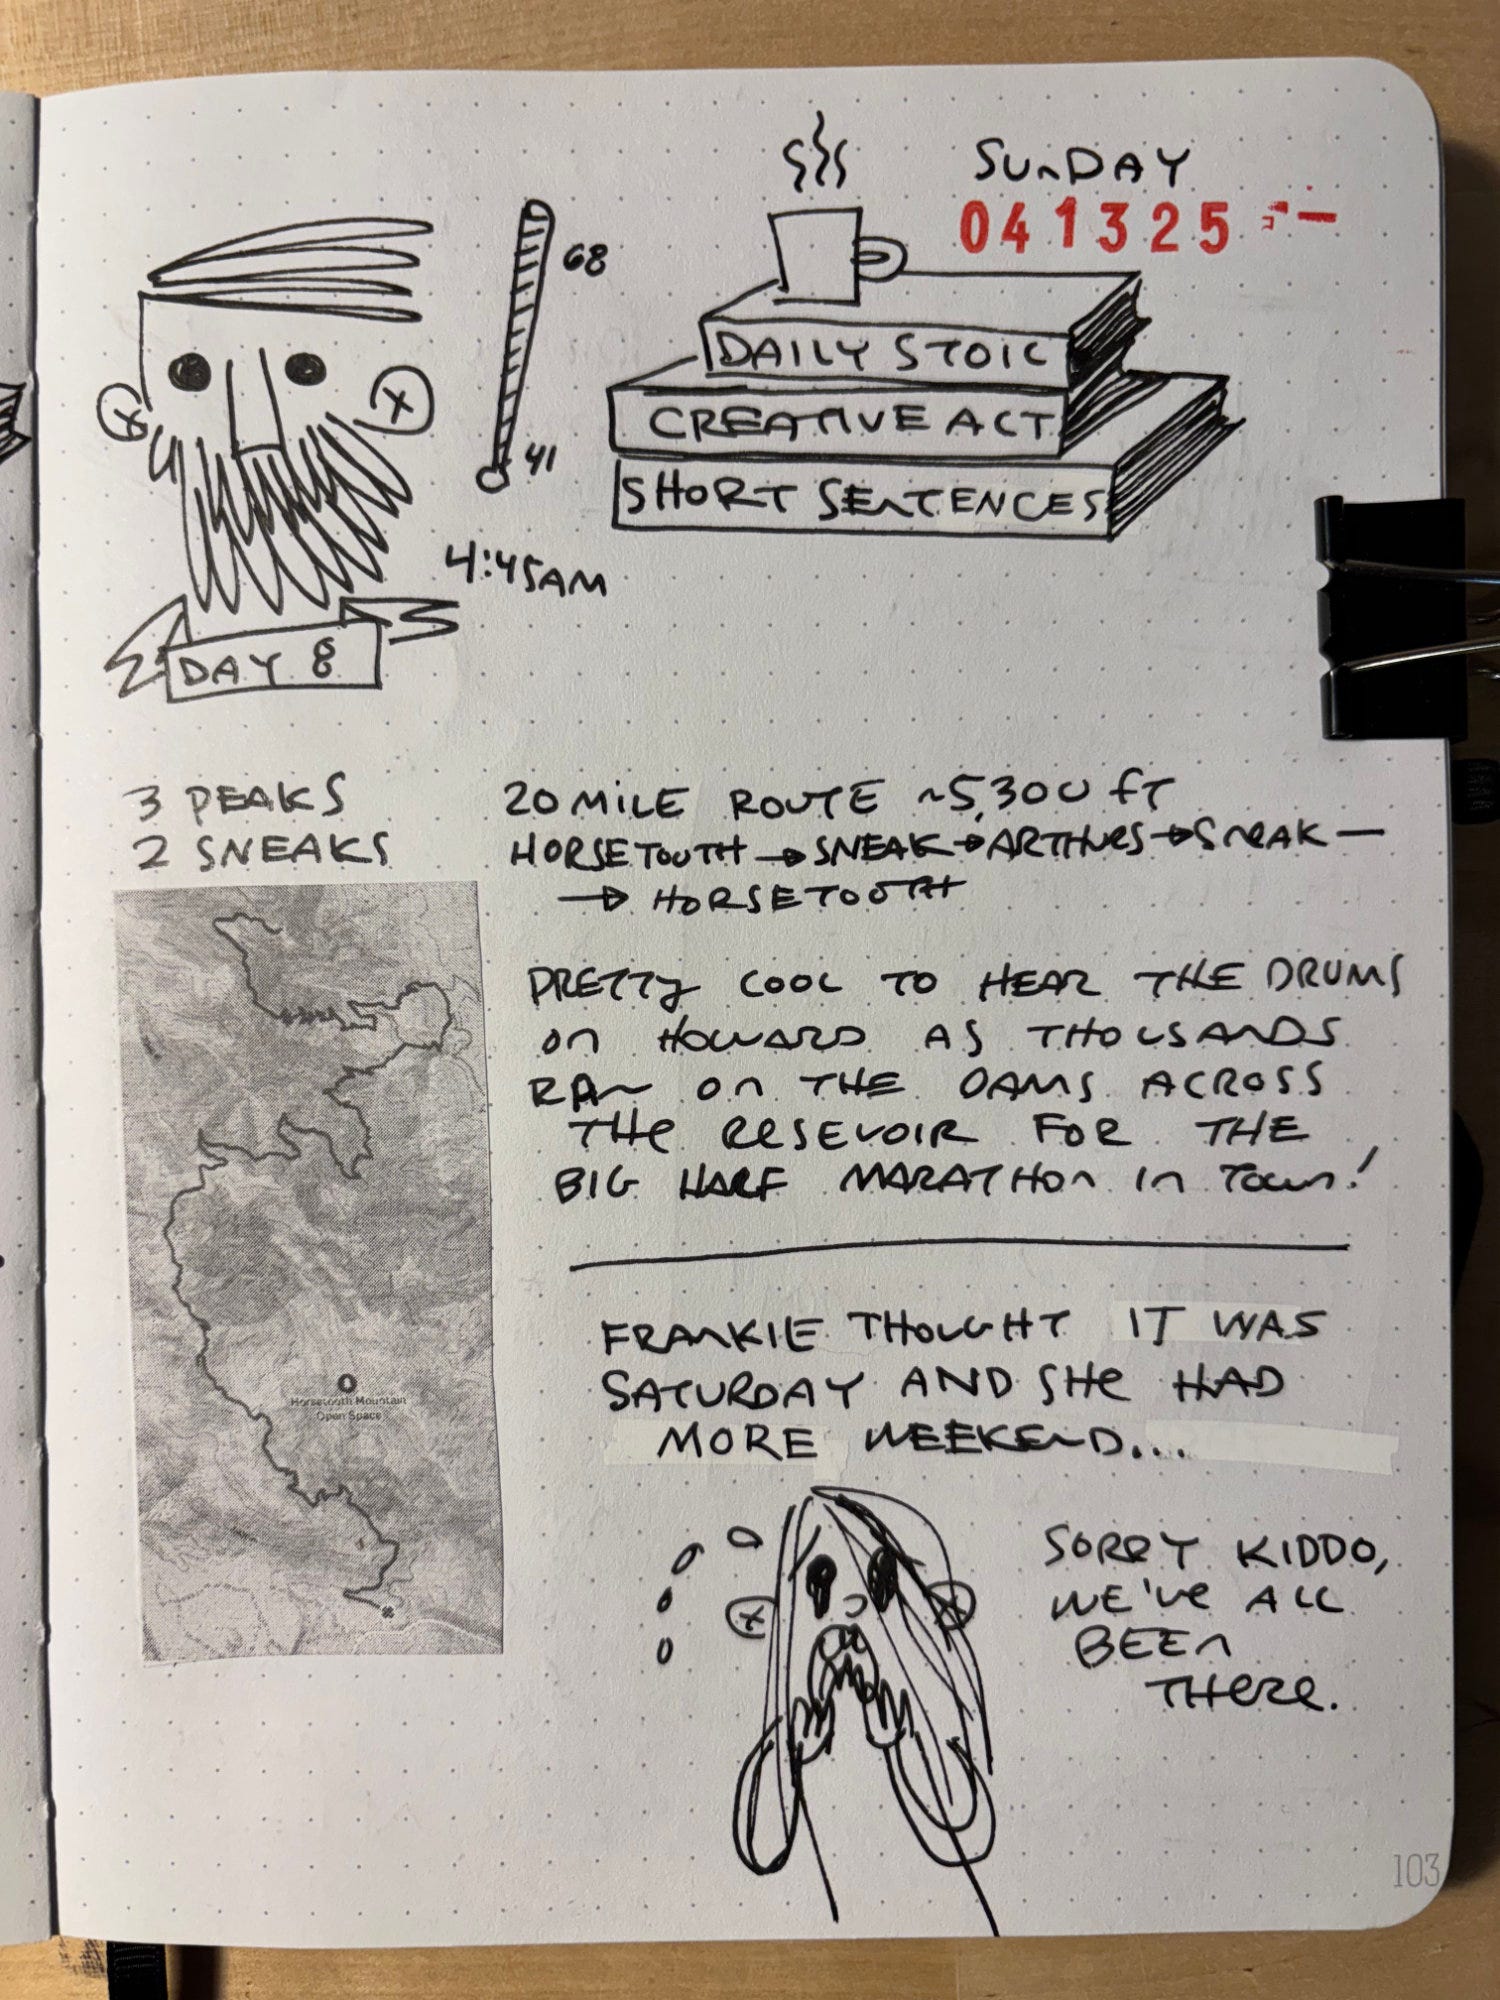 SUNDAY
041325
68
41
DAILY STOIC
CREATIVE ACT
SHORT SENTENCES
4:45AM
DAY 8
3 PEAKS
2 SNEAKS
20 MILE ROUTE ~5,300 FT
HORSETOOTH → SNEAK → ARTHURS → SNEAK —
→ HORSETOOTH
PRETTY COOL TO HEAR THE DRUMS
ON HOWARD AS THOUSANDS
RAN ON THE DAMS ACROSS
THE RESEVOIR FOR THE
BIG HALF MARATHON IN TOWN!
Horsetooth Mountain
Open Space
FRANKIE THOUGHT IT WAS
SATURDAY AND SHE HAD
MORE WEEKEND...
SORRY KIDDO,
WE'VE ALL
BEEN
THERE.
103